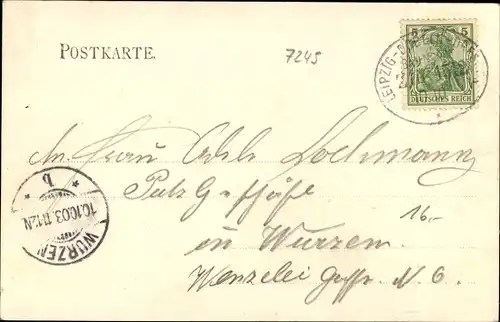 POSTKARTE.
7245
5 5
DEUTSCHES REICH
LEIPZIG-
An Frau Lochmann
Putz Geschäft
16.-
in Wurzen
Wenzelei Gasse N. 6.
WURZEN
10.10.03. 11-12.N
* b *